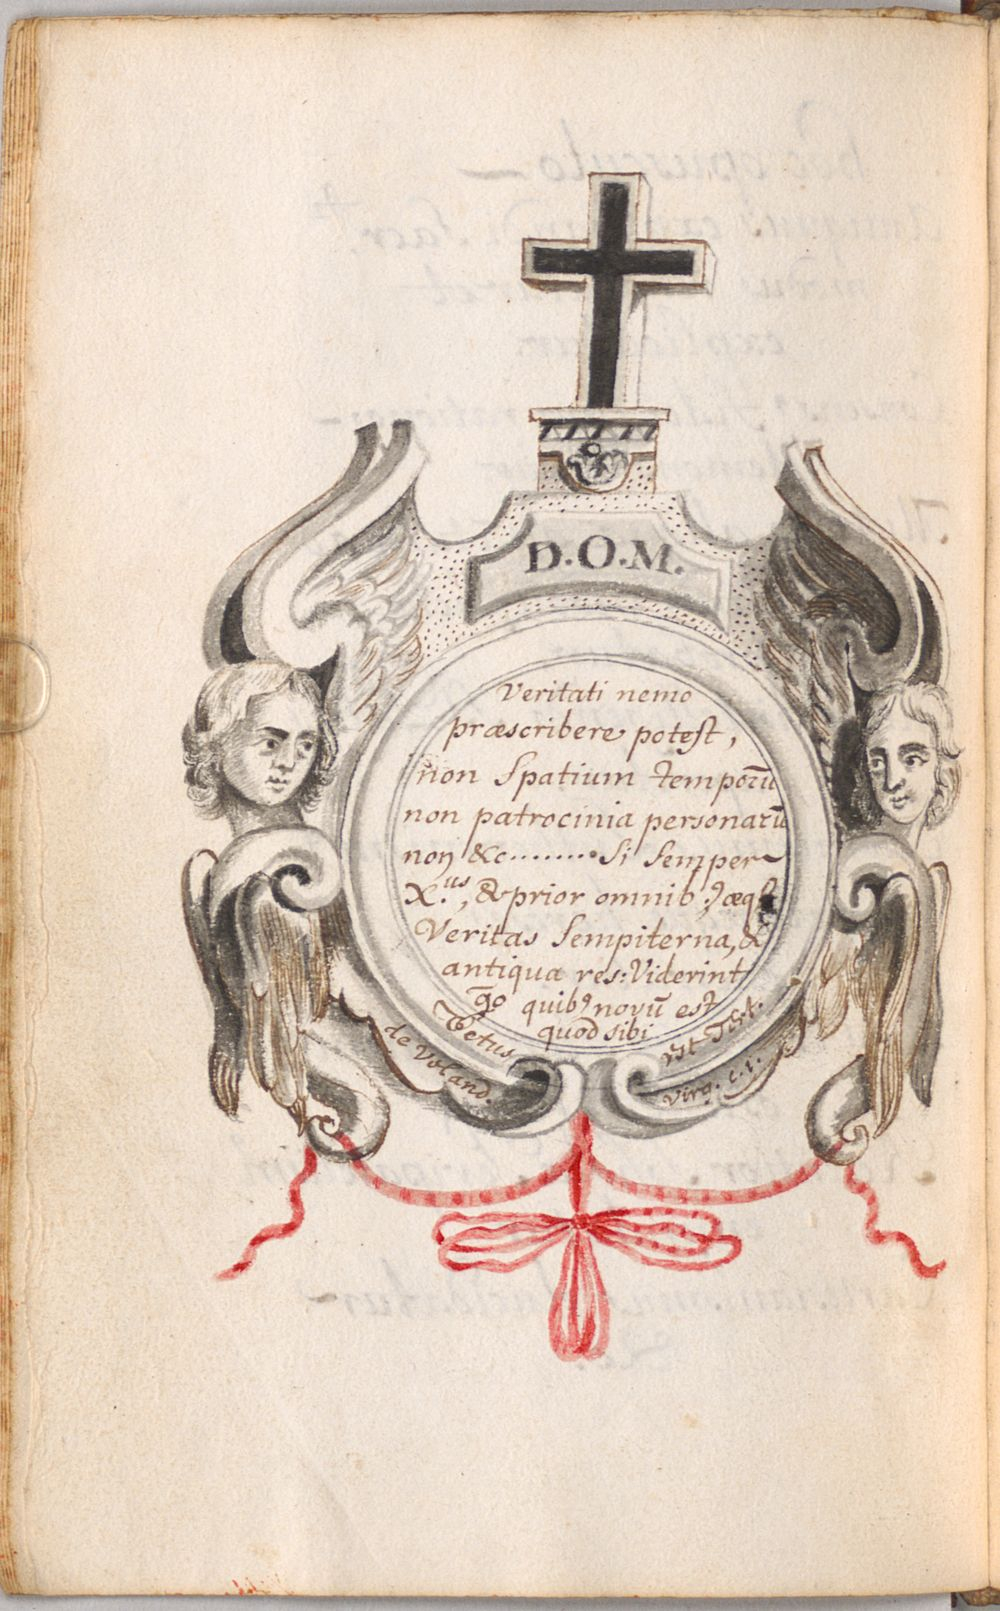 D.O.M.
Veritati nemo
præscribere potest,
non Spatium temporū
non patrocinia personarū
non &c········Si semper
X.us, & prior omnib9, æq
Veritas sempiterna, &
antiqua res: Viderint
g̃o quib9 novū est
quod sibi
Vetus
est Tert.
de Veland.
Virg. c. 1.